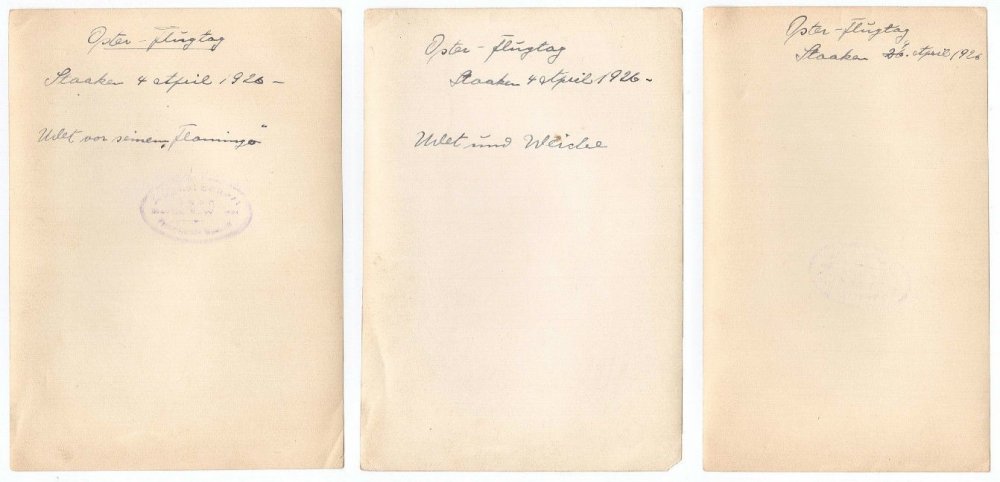 Oster-Flugtag
Staaken 4 April 1926 -
Udet vor seinem „Flamingo"
Oster-Flugtag
Staaken 4 April 1926 -
Udet und Weiche
Oster-Flugtag
Staaken April 1926